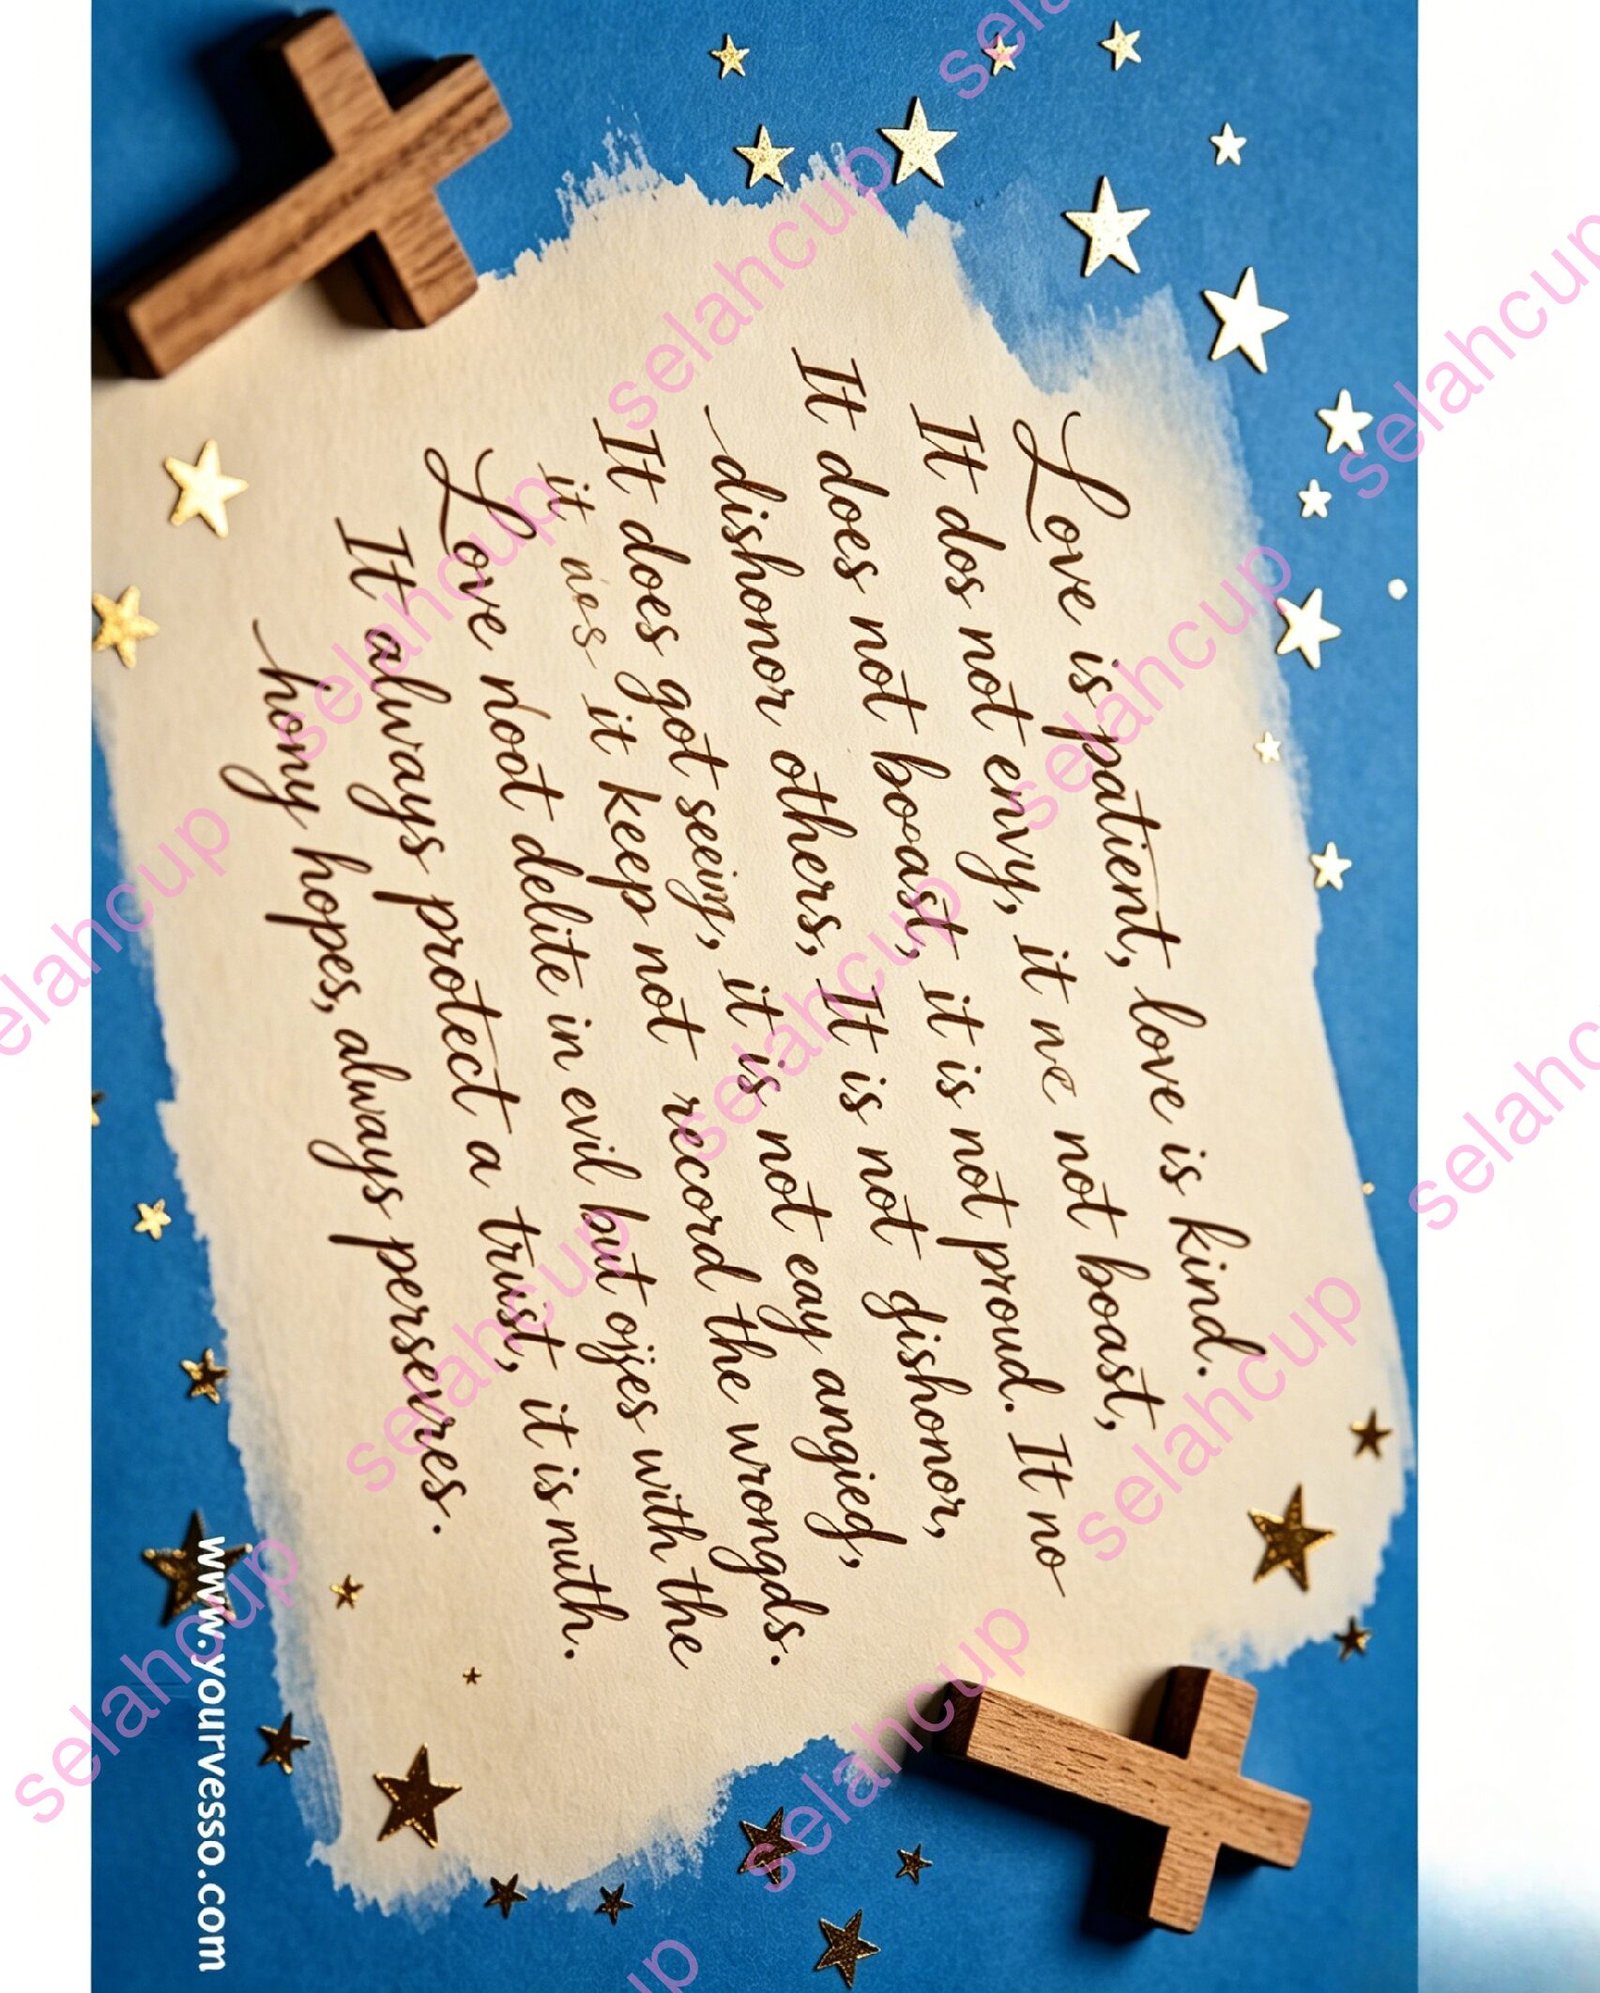 Love is patient, love is kind.
It dos not envy, it ne not boast,
It does not booast, it is not proud. It no
dishonor others, It is not dishonor,
It does got seeing, it is not eay angied,
it nos it keep not record the wrongds.
Love noot delite in evil but ojjes with the
It always protect a trust, it is nuth.
hony hopes, always persevres.
www.yourvesso.com
selahcup
selahcup
selahcup
selahcup
selahcup
selahcup
selahcup
selahcup
selahcup
selahcup
selahcup
selahcup
selahcup
selahcup